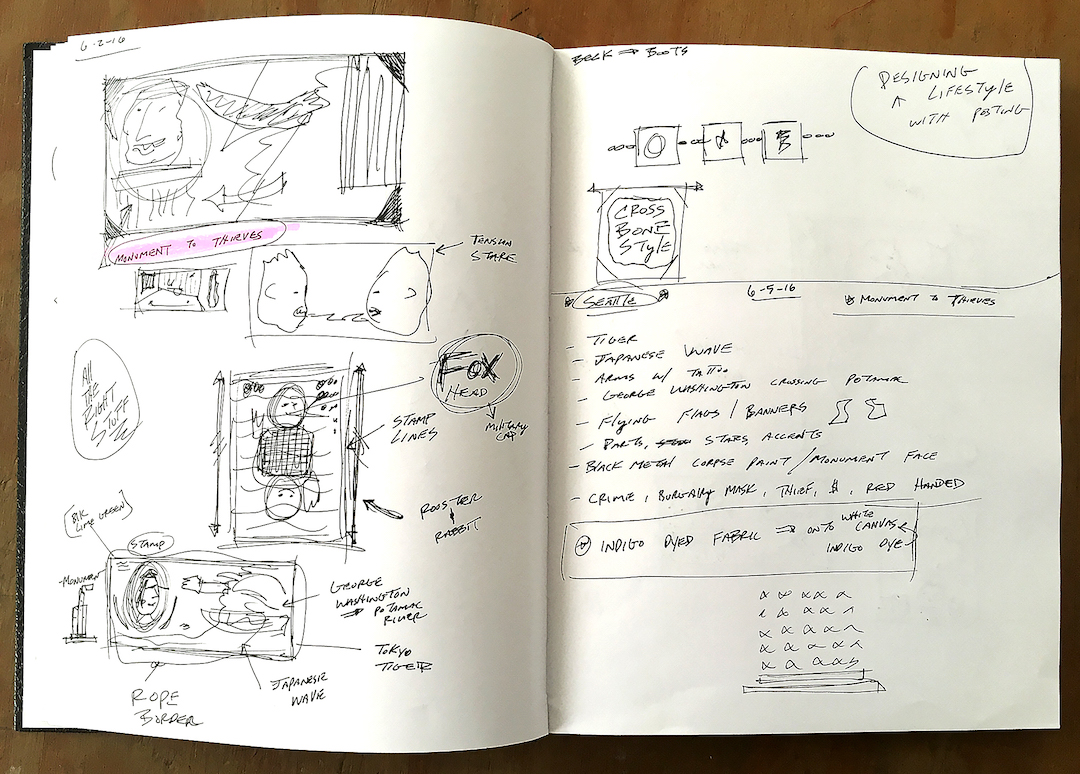 6-2-16
MONUMENT TO THIEVES
TENSION
STARE
ALL
THE
RIGHT
FOX
HEAD
MILITARY
CAP
STAMP
LINES
ROOSTER
RABBIT
[BLK
LIME GREEN]
STAMP
MONUMENT
GEORGE
WASHINGTON
→ POTAMAC
RIVER
TOKYO
TIGER
JAPANESE
WAVE
ROPE
BORDER
BECK → BOOTS
DESIGNING
A LIFESTYLE
WITH POSTING
CROSS
BONE
STYLE
SEATTLE
6-5-16
MONUMENT TO THIEVES
- TIGER
- JAPANESE WAVE
- ARMS W/ TATTOO
- GEORGE WASHINGTON CROSSING POTAMAC
- FLYING FLAGS / BANNERS
- PARTS, STARS, ACCENTS
- BLACK METAL CORPSE PAINT / MONUMENT FACE
- CRIME, BURGLARY MASK, THIEF, $, RED HANDED
INDIGO DYED FABRIC → ONTO WHITE CANVAS
INDIGO DYE